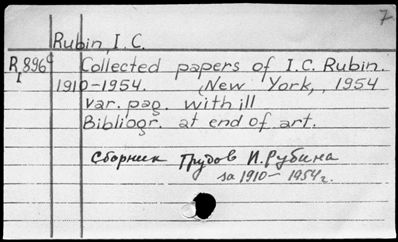 7
Rubin, I. C.
R 896c Collected papers of I. C. Rubin.
I 1910-1954. New York, 1954
var. pag. with ill
Bibliogr. at end of art.
Сборник Трудов И. Рубина
за 1910-1954г.